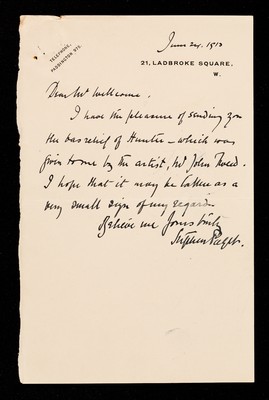 TELEPHONE,
PADDINGTON 975.
June 24, 1913
21, LADBROKE SQUARE,
W.
Dear Mr Wellcome.
I have the pleasure of sending you
the bas relief of Hunter – which was
given to me by the artist, Mr John Tweed.
I hope that it may be taken as a
very small sign of my regard
Believe me Yours truly
Stephen Paget.